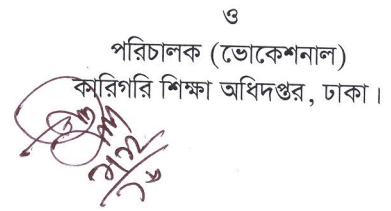 ও
পরিচালক (ভোকেশনাল)
কারিগরি শিক্ষা অধিদপ্তর, ঢাকা।